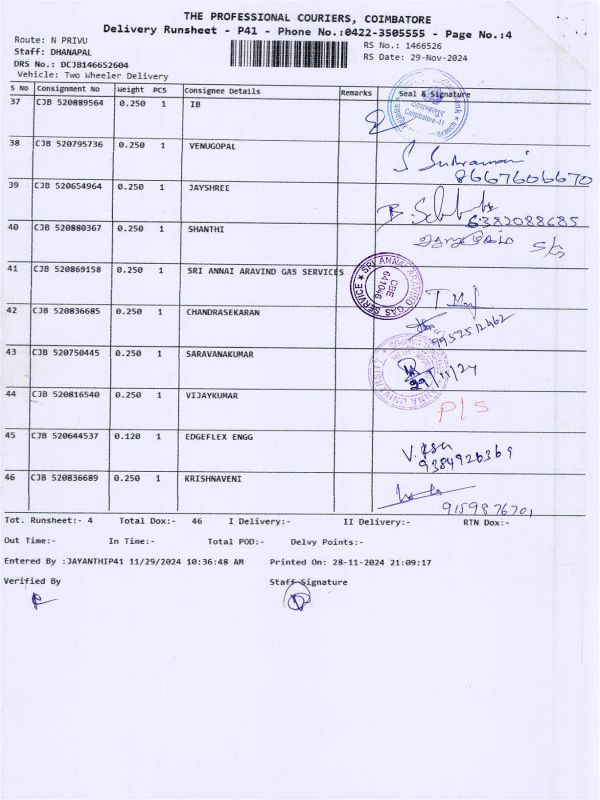 THE PROFESSIONAL COURIERS, COIMBATORE
Delivery Runsheet - P41 - Phone No.:0422-3505555 - Page No.:4
Route: N PRIVU
RS No.: 1466526
Staff: DHANAPAL
RS Date: 29-Nov-2024
DRS No.: DCJB146652604
Vehicle: Two Wheeler Delivery
S No Consignment No Weight PCS Consignee Details Remarks Seal & Signature
37 CJB 520889564 0.250 1 IB
कोयम्बत्तूर
Coimbatore-41
Branch
38 CJB 520795736 0.250 1 VENUGOPAL
8667606670
39 CJB 520654964 0.250 1 JAYSHREE
6382088685
40 CJB 520880367 0.250 1 SHANTHI
41 CJB 520869158 0.250 1 SRI ANNAI ARAVIND GAS SERVICES
SRI ANNAI ARAVIND GAS SERVICE
CBE
641046
42 CJB 520836685 0.250 1 CHANDRASEKARAN
9952512462
43 CJB 520750445 0.250 1 SARAVANAKUMAR
ANNA UNIVERSITY
29/11/24
44 CJB 520816540 0.250 1 VIJAYKUMAR
P/S
45 CJB 520644537 0.120 1 EDGEFLEX ENGG
9384926369
46 CJB 520836689 0.250 1 KRISHNAVENI
9159876701
Tot. Runsheet:- 4 Total Dox:- 46 I Delivery:- II Delivery:- RTN Dox:-
Out Time:- In Time:- Total POD:- Delvy Points:-
Entered By :JAYANTHIP41 11/29/2024 10:36:48 AM Printed On: 28-11-2024 21:09:17
Verified By Staff Signature